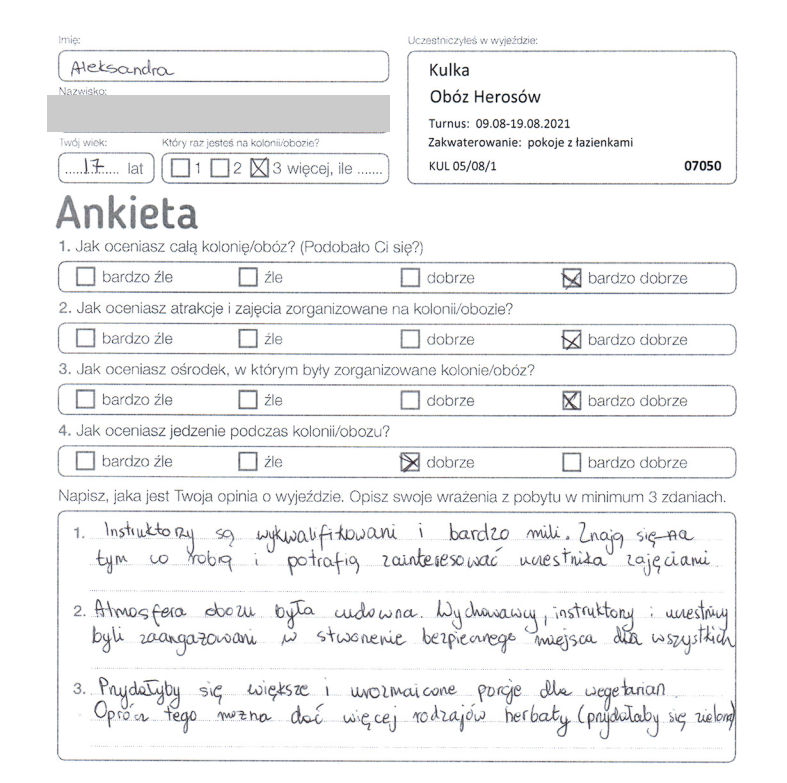 Imię:
Aleksandra
Nazwisko:
Twój wiek:
17 lat
Który raz jesteś na kolonii/obozie?
1 2 3 więcej, ile .......
Uczestniczyłeś w wyjeździe:
Kulka
Obóz Herosów
Turnus: 09.08-19.08.2021
Zakwaterowanie: pokoje z łazienkami
KUL 05/08/1 07050
Ankieta
1. Jak oceniasz całą kolonię/obóz? (Podobało Ci się?)
bardzo źle źle dobrze bardzo dobrze
2. Jak oceniasz atrakcje i zajęcia zorganizowane na kolonii/obozie?
bardzo źle źle dobrze bardzo dobrze
3. Jak oceniasz ośrodek, w którym były zorganizowane kolonie/obóz?
bardzo źle źle dobrze bardzo dobrze
4. Jak oceniasz jedzenie podczas kolonii/obozu?
bardzo źle źle dobrze bardzo dobrze
Napisz, jaka jest Twoja opinia o wyjeździe. Opisz swoje wrażenia z pobytu w minimum 3 zdaniach.
1. Instruktorzy są wykwalifikowani i bardzo mili. Znają się na
tym co robią i potrafią zainteresować uczestnika zajęciami.
2. Atmosfera obozu była cudowna. Wychowawcy, instruktorzy i uczestnicy
byli zaangażowani w stworzenie bezpiecznego miejsca dla wszystkich
3. Przydałyby się większe i urozmaicone porcje dla wegetarian.
Oprócz tego można dać więcej rodzajów herbaty (przydałaby się zielona)